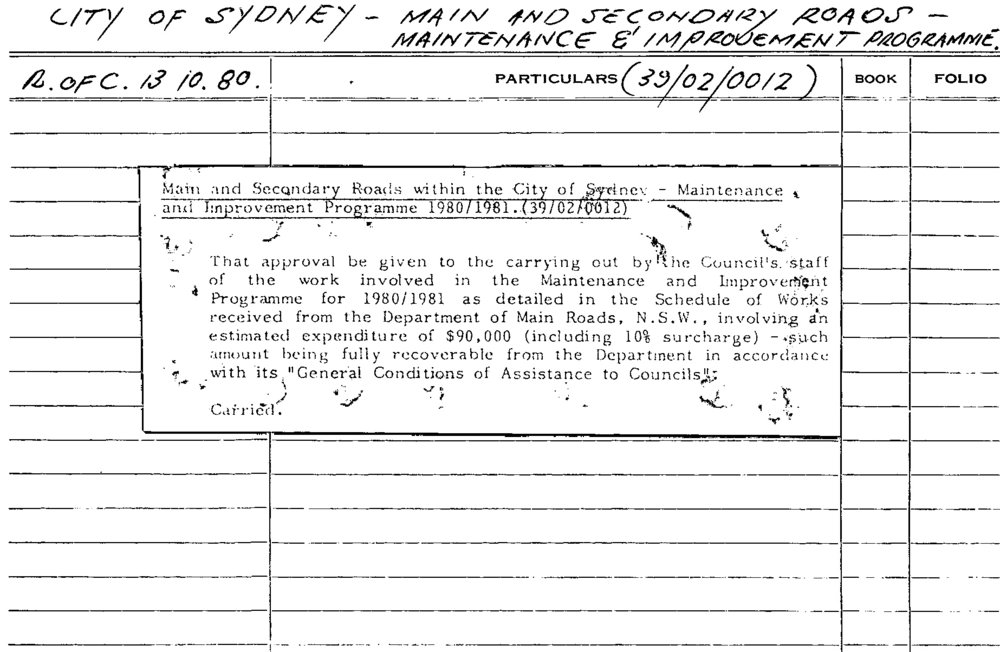 CITY OF SYDNEY - MAIN AND SECONDARY ROADS -
MAINTENANCE & IMPROVEMENT PROGRAMME.
R. OF C. 13 10. 80. PARTICULARS (39/02/0012) BOOK FOLIO
Main and Secondary Roads within the City of Sydney - Maintenance
and Improvement Programme 1980/1981.(39/02/0012)
That approval be given to the carrying out by the Council's staff
of the work involved in the Maintenance and Improvement
Programme for 1980/1981 as detailed in the Schedule of Works
received from the Department of Main Roads, N.S.W., involving an
estimated expenditure of $90,000 (including 10% surcharge) - such
amount being fully recoverable from the Department in accordance
with its "General Conditions of Assistance to Councils".
Carried.